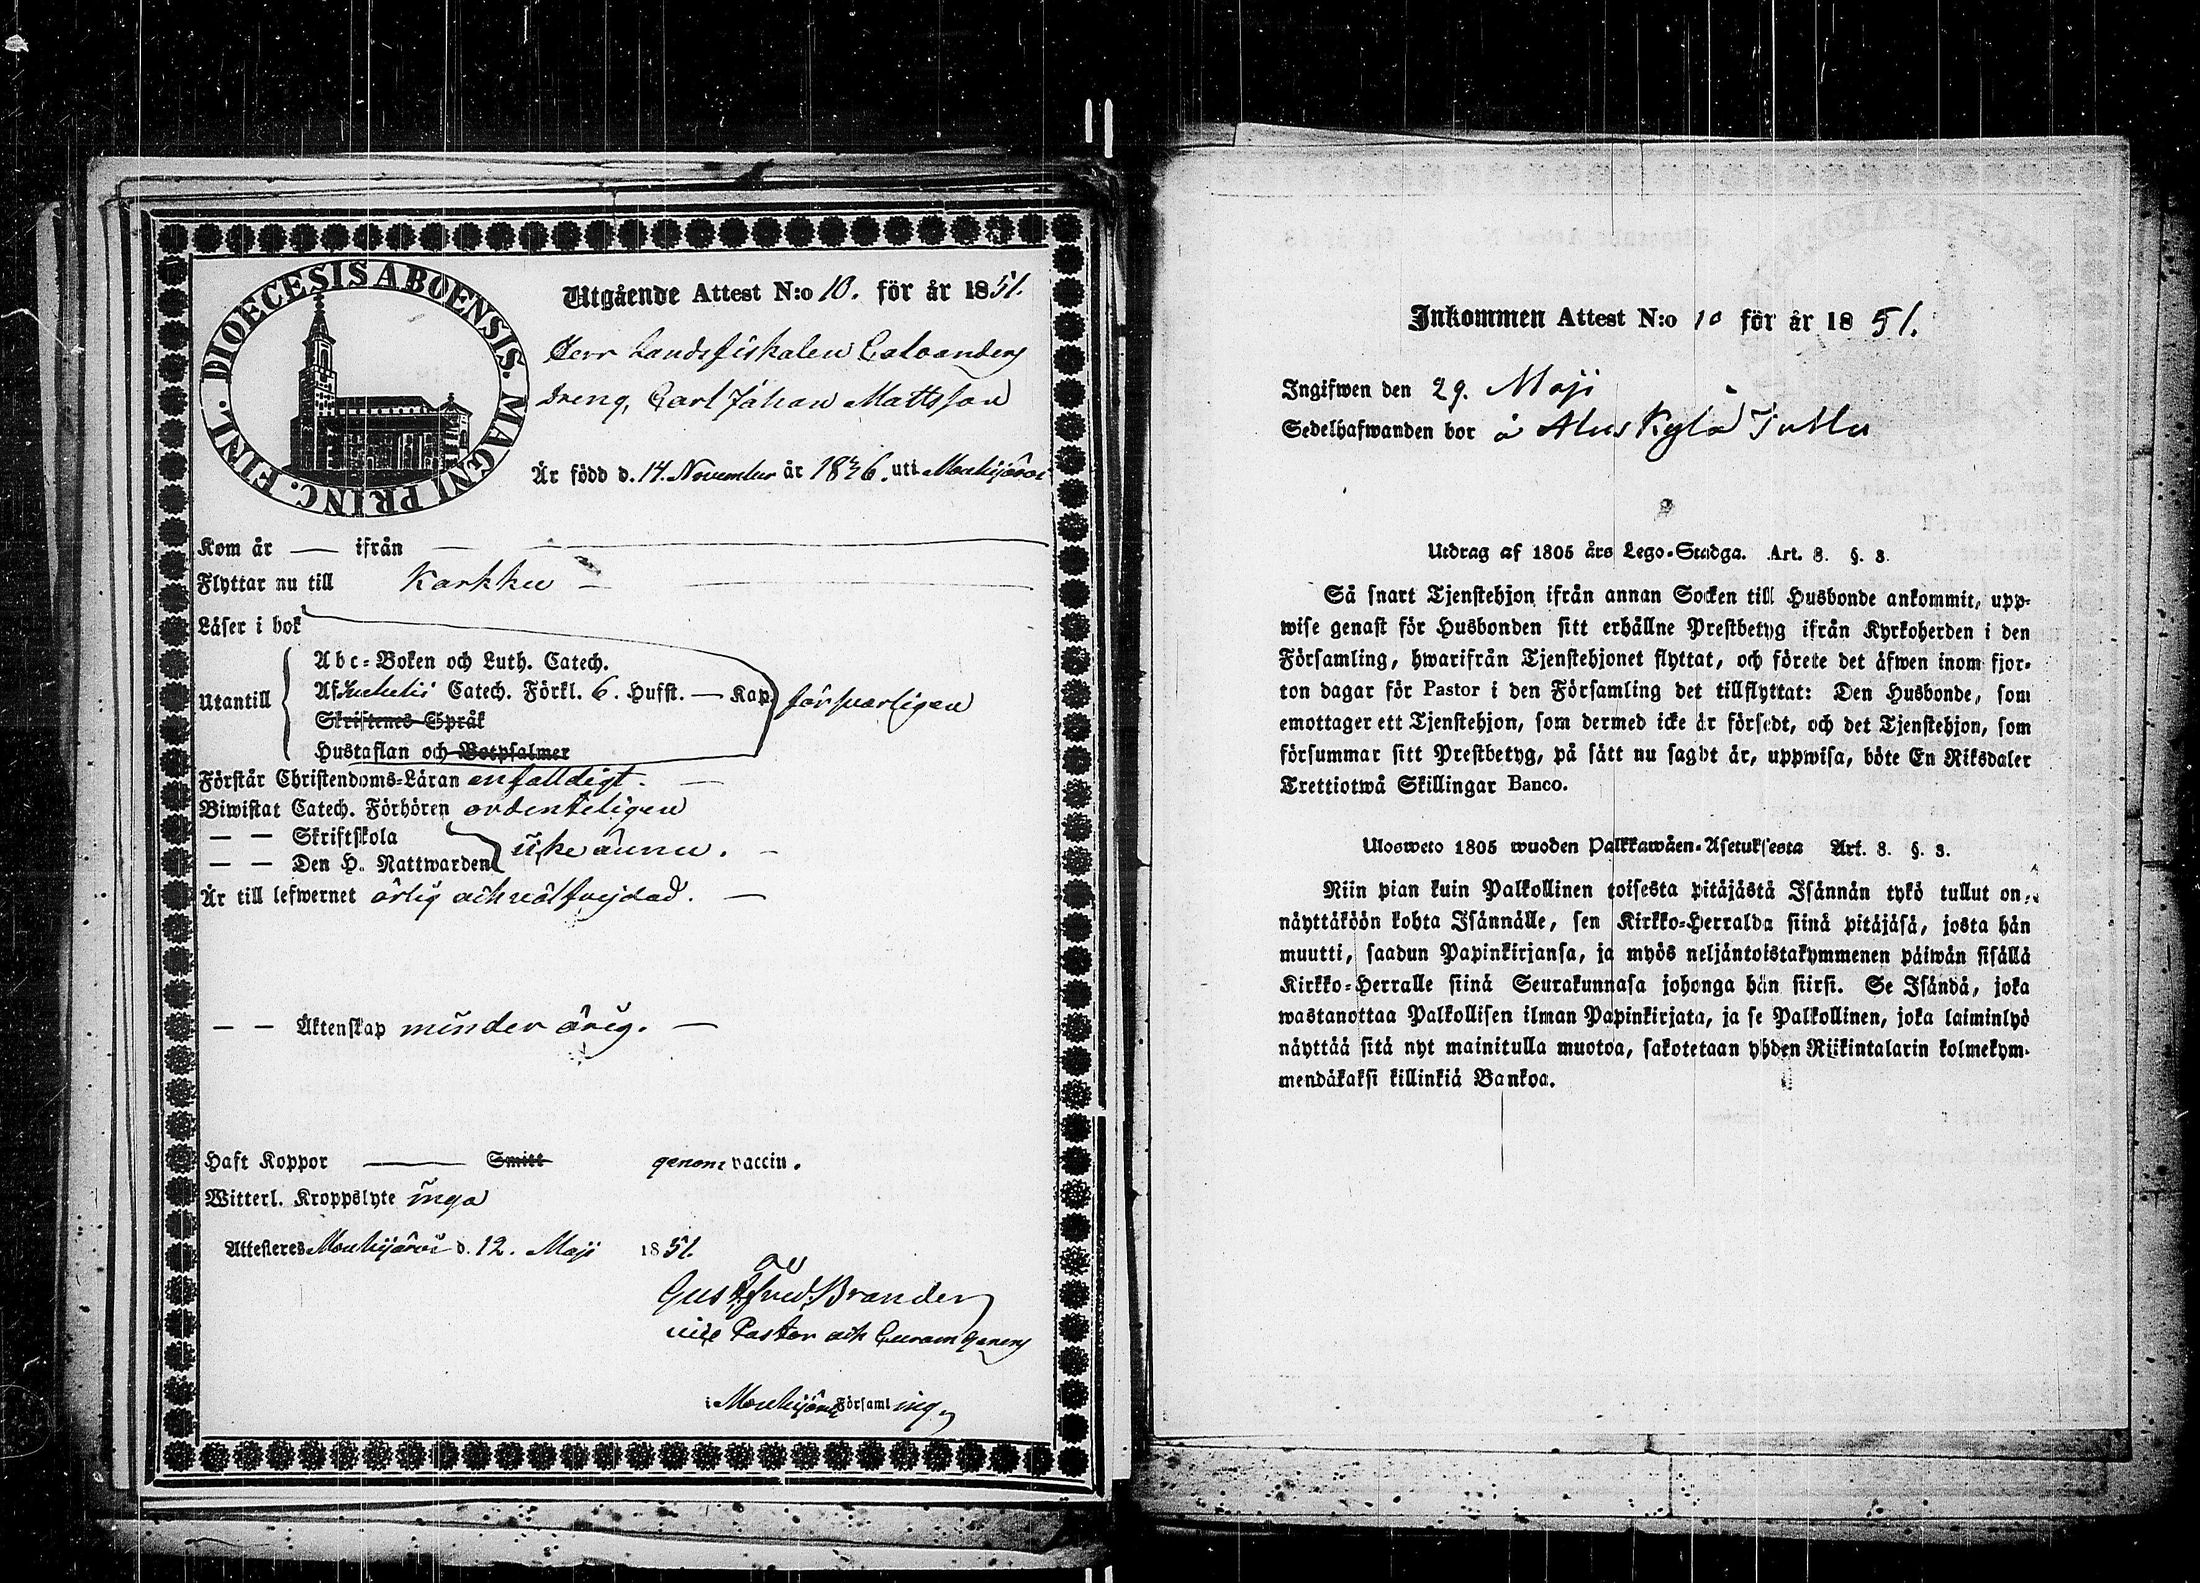 DIOECESIS ABOENSIS. MAGNI PRINC. FINL.
Utgående Attest N:o 10. för år 1851.
Herr Landsfiskalen Calvanders
Dreng, Carl Johan Mattsson
Är född d. 14. November år 1836. uti Mouhijärvi
Kom år — ifrån —
Flyttar nu till Karkku —
Läser i bok
Utantill
Abc-Boken och Luth. Catech.
Af Catech. Förkl. 6. Hufst. — Kap.
försvarligen
Skriftenes Språk
Hustaflan och Botpsalmer
Förstår Christendoms-Läran enfaldigt. —
Biwistat Catech. Förhören ordenteligen
— — Skriftskola
— — Den H. Nattwarden
icke ännu. —
Är till lefwernet ärlig och välfrejdad. —
— — Äktenskap minderårig. —
Haft Koppor — Smitt genom vaccin.
Witterl. Kroppslyte inga
Attesteres Mouhijärvi d. 12. Maji 1851.
av
Gust. Fred. Brander
vice Pastor och Curam gerens
i Mouhijärvi Församling
Inkommen Attest N:o 10 för år 1851.
Ingifwen den 29. Maji
Sedelhafwanden bor å Aluskylä
Utdrag af 1805 års Lego-Stadga. Art. 8. §. 3.
Så snart Tjenstehjon ifrån annan Socken till Husbonde ankommit, upp-
wise genast för Husbonden sitt erhållne Prestbetyg ifrån Kyrkoherden i den
Församling, hwarifrån Tjenstehjonet flyttat, och förete det äfwen inom fjor-
ton dagar för Pastor i den Församling det tillflyttat: Den Husbonde, som
emottager ett Tjenstehjon, som dermed icke är försedt, och det Tjenstehjon, som
försummar sitt Prestbetyg, på sätt nu sagdt är, uppwisa, böte En Riksdaler
Trettiotwå Skillingar Banco.
Ulosweto 1805 wuoden Palkkawäen-Asetuksesta Art. 8. §. 3.
Niin pian kuin Palkollinen toisesta pitäjästä Isännän tykö tullut on,
näyttäköön kohta Isännälle, sen Kirkko-Herralda siinä pitäjäsä, josta hän
muutti, saadun Papinkirjansa, ja myös neljäntoistakymmenen päiwän sisällä
Kirkko-Herralle siinä Seurakunnasa johonga hän siirsi. Se Isändä, joka
wastanottaa Palkollisen ilman Papinkirjata, ja se Palkollinen, joka laiminlyö
näyttää sitä nyt mainitulla muotoa, sakotetaan yhden Riikintalarin kolmekym-
mendäkaksi killinkiä Bankoa.